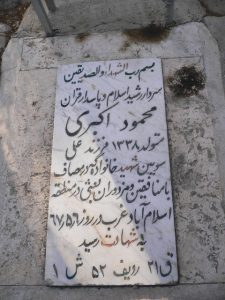 بسم رب الشهداء والصدیقین
سردار رشید اسلام و پاسدار قرآن
محمود اکبری
متولد ۱۳۳۸ فرزند علی
سومین شهید خانواده در مصاف
با منافقین و مزدوران بعثی در منطقه
اسلام آباد غرب در روز ۶۷/۵/۶
به شهادت رسید
ق ۳۱ ردیف ۵۲ ش ۱